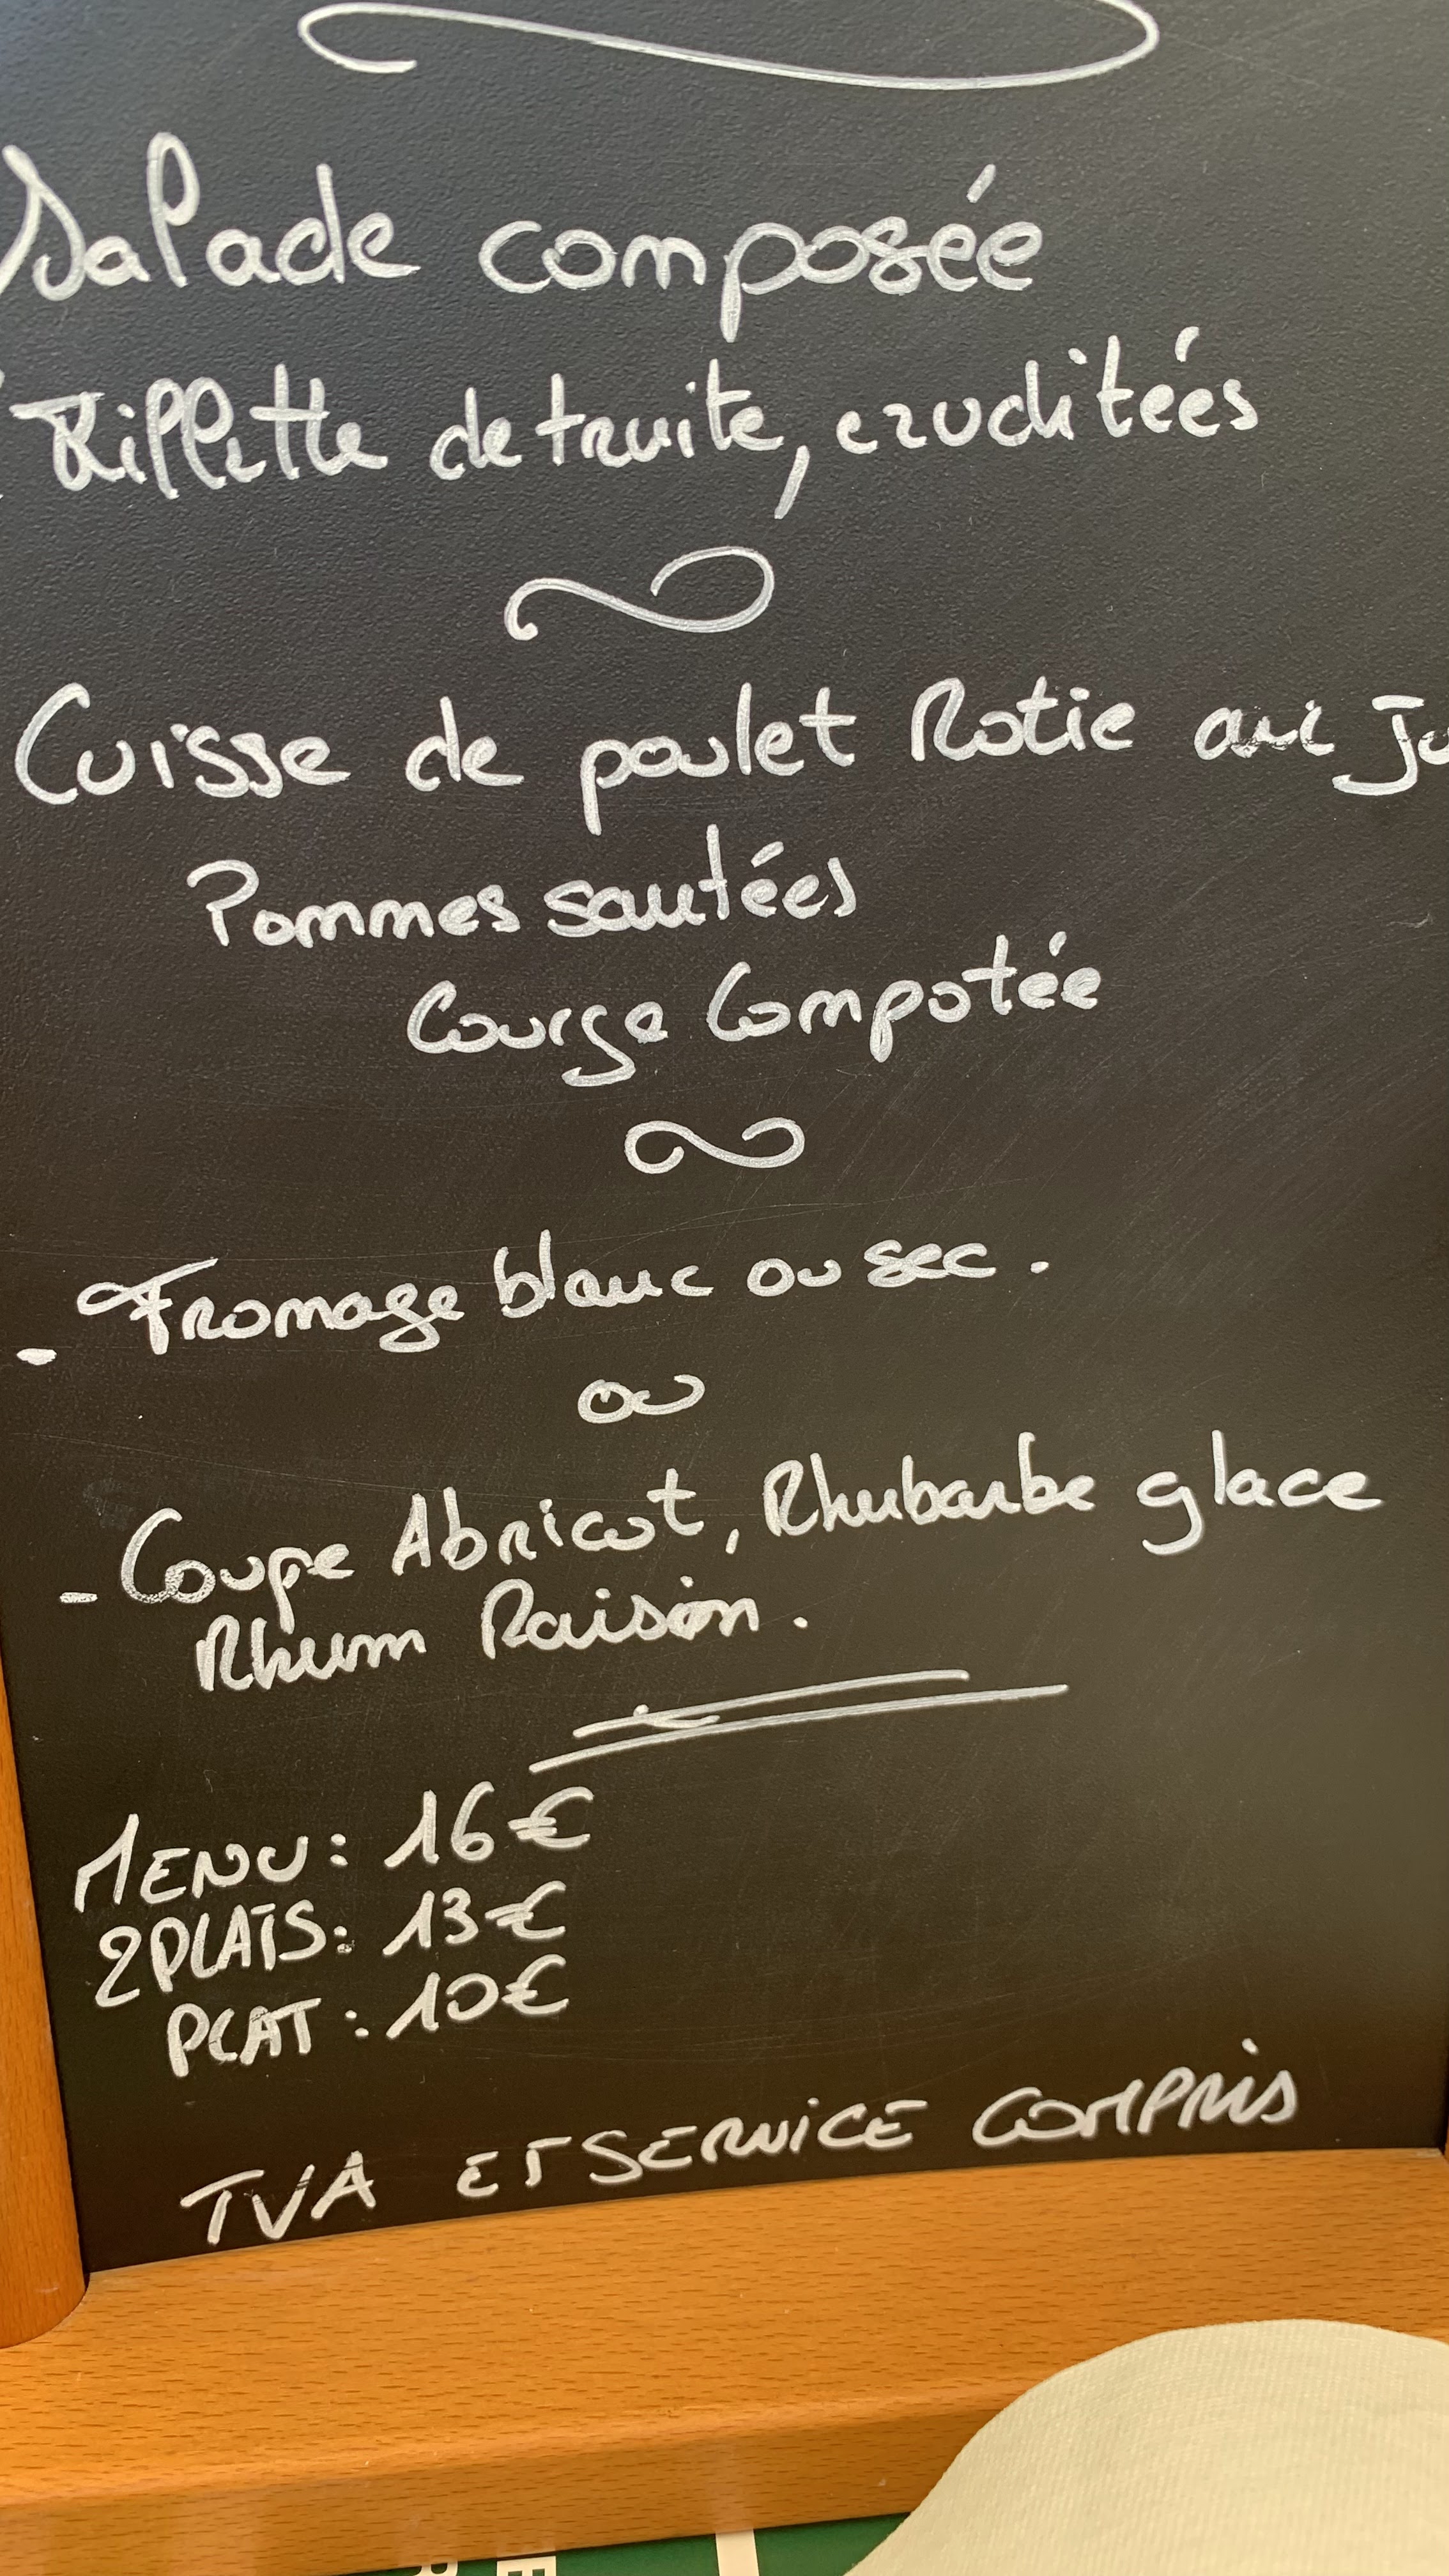 Salade composée
Rillette de truite, cruditées
Cuisse de poulet Rotie au Ju
Pommes sautées
Courge Compotée
- Fromage blanc ou sec.
ou
- Coupe Abricot, Rhubarbe glace
Rhum Raisin.
MENU: 16€
2PLATS: 13€
PLAT: 10€
TVA ET SERVICE COMPRIS